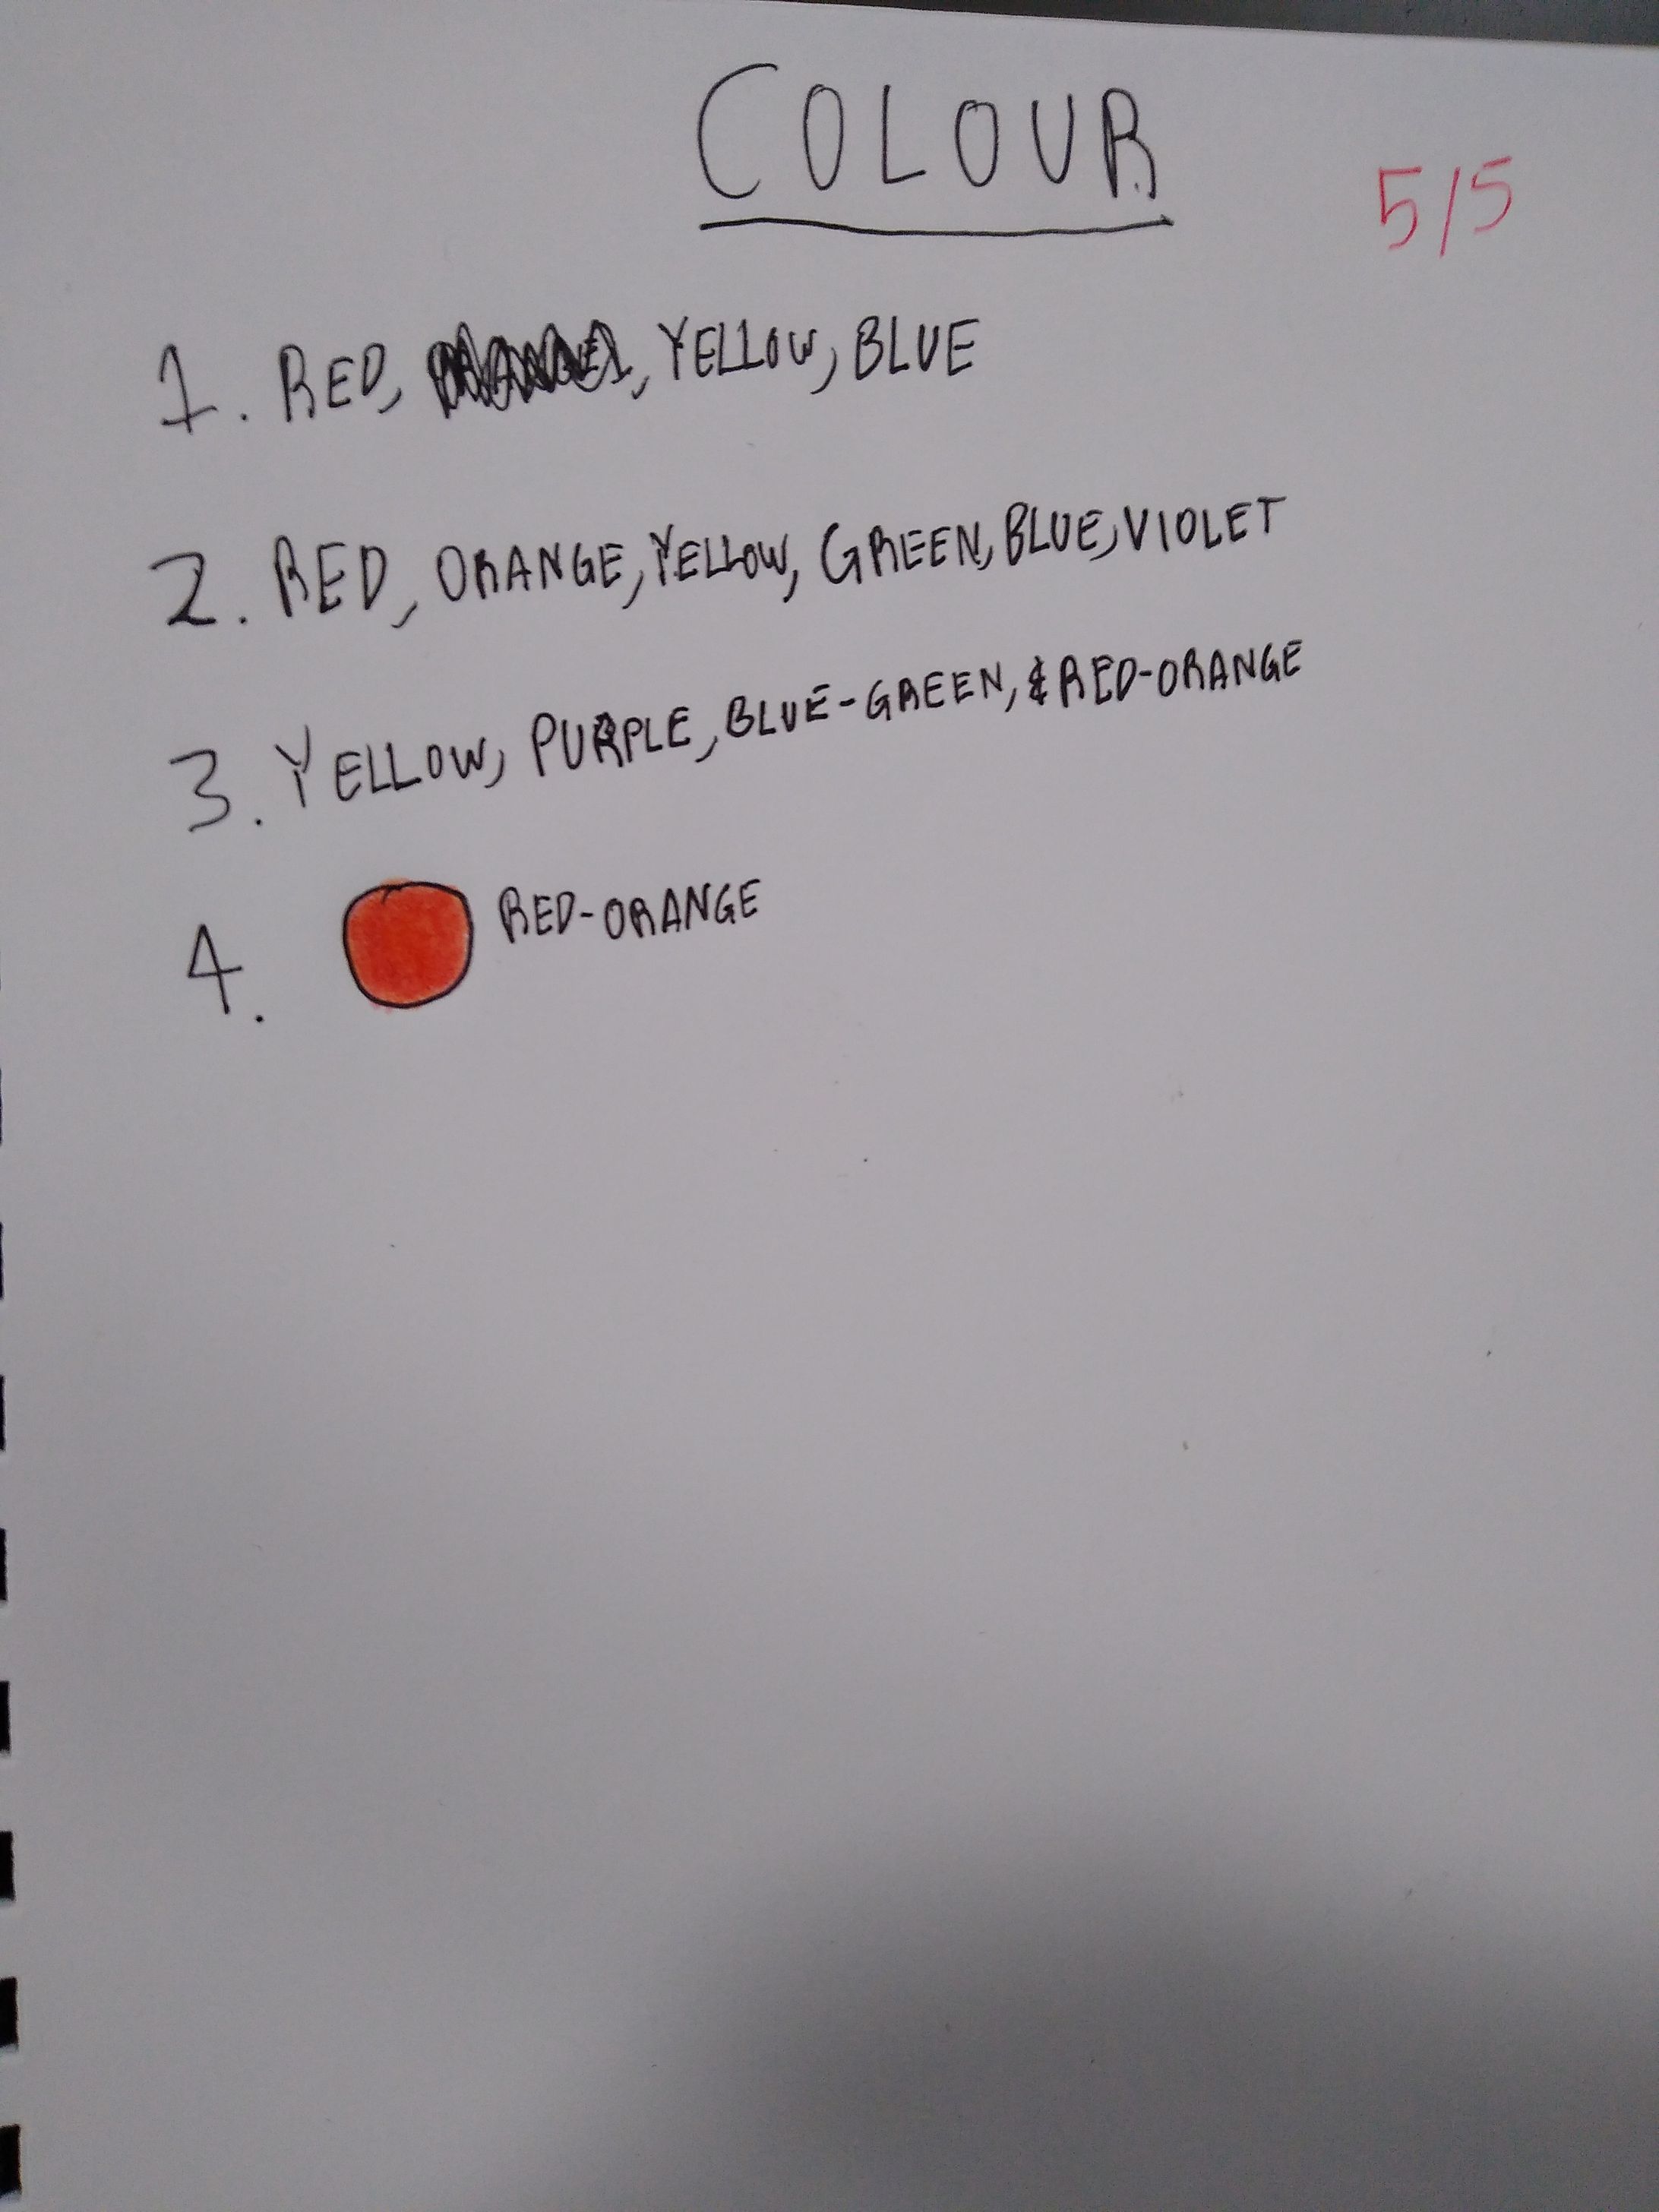 COLOUR
5/5
1. RED, , YELLOW, BLUE
2. RED, ORANGE, YELLOW, GREEN, BLUE, VIOLET
3. YELLOW, PURPLE, BLUE-GREEN, & RED-ORANGE
4. RED-ORANGE